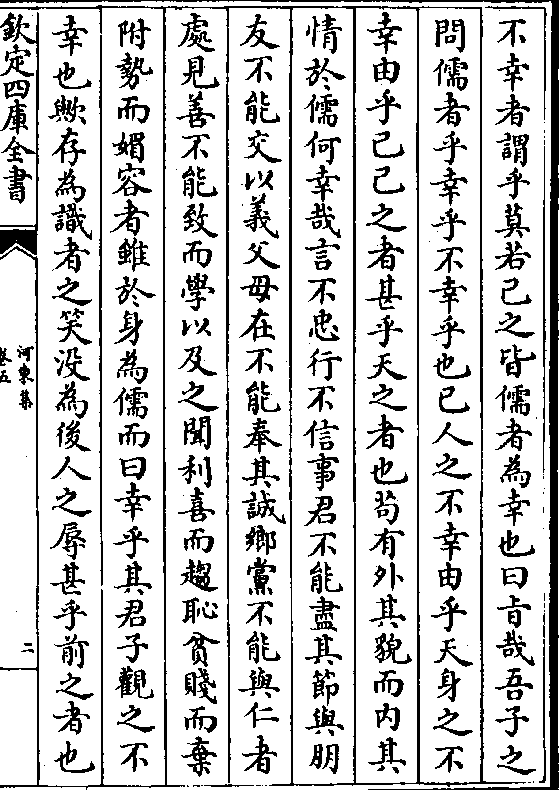 不幸者謂乎莫若己之皆儒者為幸也曰㫖哉吾子之
問儒者乎幸乎不幸乎也已人之不幸由乎天身之不
幸由乎己己之者甚乎天之者也苟有外其貌而内其
情於儒何幸哉言不忠行不信事君不能盡其節與朋
友不能交以義父母在不能奉其誠鄉黨不能與仁者
處見善不能致而學以及之聞利喜而趨恥貧賤而棄
附勢而媚容者雖於身為儒而曰幸乎其君子觀之不
幸也歟存為識者之笑没為後人之辱甚乎前之者也
欽定四庫全書
河東集
卷五
二